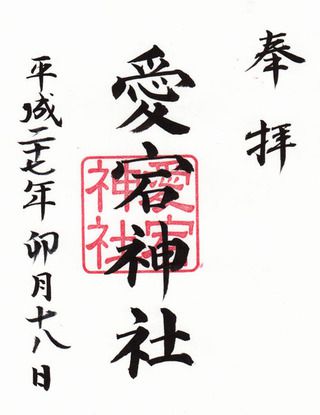 奉拝
愛宕神社
愛宕神社
平成二十七年 卯月十八日